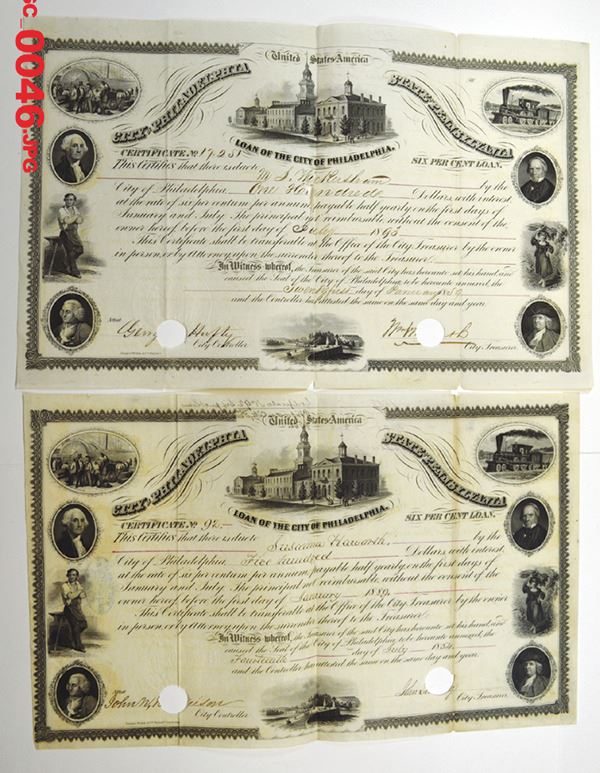 SC_0046.JPG
United States America
CITY OF PHILADELPHIA
STATE OF PENNSYLVANIA
LOAN OF THE CITY OF PHILADELPHIA.
CERTIFICATE No 17281
SIX PER CENT LOAN.
This Certifies that there is due to
by the
City of Philadelphia One Hundred Dollars with interest
at the rate of six per centum per annum, payable half yearly, on the first days of
January and July. The principal not reimbursable without the consent of the
owner hereof before the first day of July 1893
This Certificate shall be transferable at the Office of the City Treasurer by the owner
in person, or by Attorney upon the surrender thereof to the Treasurer.
In Witness whereof, the Treasurer of the said City has hereunto set his hand, and
caused the Seal of the City of Philadelphia, to be hereunto annexed, the
day of January
and the Controller has attested the same on the same day and year.
Attest
City Controller
City Treasurer
United States America
CITY OF PHILADELPHIA
STATE OF PENNSYLVANIA
LOAN OF THE CITY OF PHILADELPHIA.
CERTIFICATE No 92
SIX PER CENT LOAN.
This Certifies that there is due to Susanna by the
City of Philadelphia Five hundred Dollars with interest,
at the rate of six per centum per annum, payable half yearly, on the first days of
January and July. The principal not reimbursable without the consent of the
owner hereof before the first day of January
This Certificate shall be transferable at the Office of the City Treasurer by the owner
in person, or by Attorney upon the surrender thereof to the Treasurer.
In Witness whereof, the Treasurer of the said City has hereunto set his hand, and
caused the Seal of the City of Philadelphia, to be hereunto annexed, the
Fourteenth day of July 1854
and the Controller has attested the same on the same day and year.
Attest
City Controller
City Treasurer